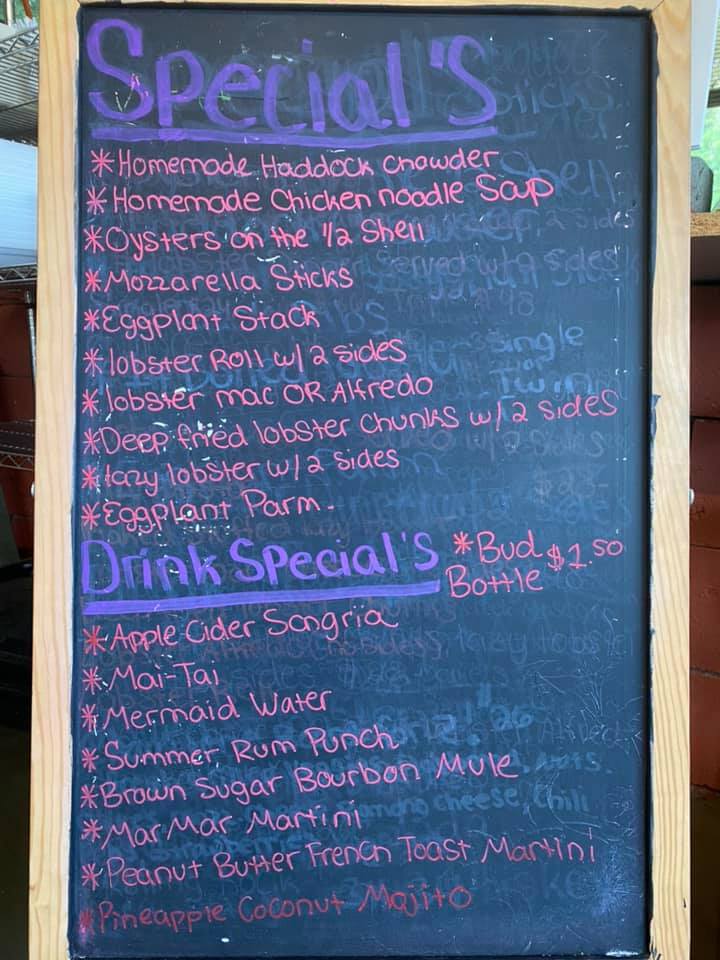 Special's
*Homemade Haddock Chowder
*Homemade Chicken noodle Soup
*Oysters on the 1/2 Shell
*Mozzarella Sticks
*Eggplant Stack
*lobster Roll w/ 2 sides
*lobster mac OR Alfredo
*Deep fried lobster Chunks w/ 2 sides
*lazy lobster w/ 2 sides
*Eggplant Parm.
Drink Special's
*Bud $1.50
Bottle
*Apple Cider Sangria
*Mai-Tai
*Mermaid Water
*Summer Rum Punch
*Brown Sugar Bourbon Mule
*Mar Mar Martini
*Peanut Butter French Toast Martini
*Pineapple Coconut Mojito